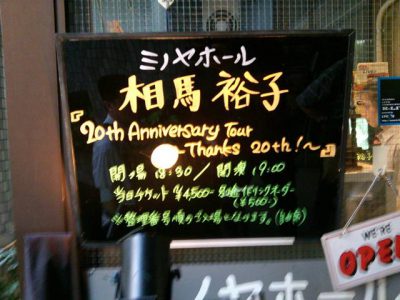 ミノヤホール
相馬 裕子
『20th Anniversary Tour
~Thanks 20th!~』
開場 18:30 / 開演 19:00
当日チケット ¥4,500- 別途1ドリンクオーダー
(¥500-)
※整理番号順のご入場になります。
WE'RE
OPE
ミノヤホール